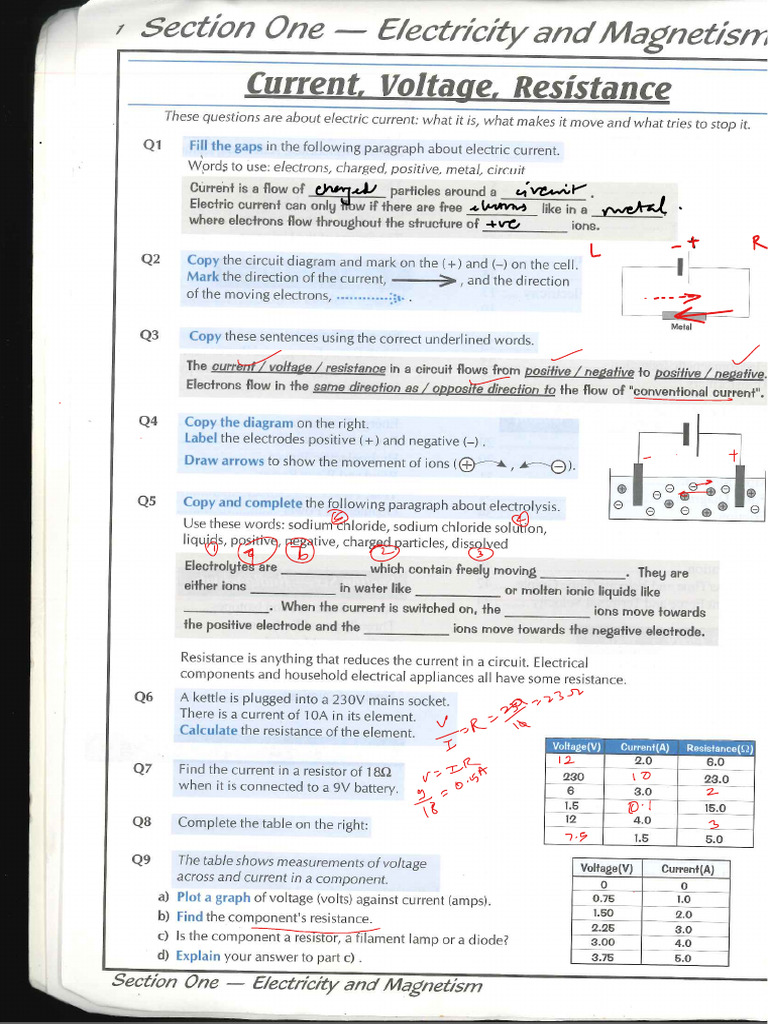 1 Section One — Electricity and Magnetism
Current, Voltage, Resistance
These questions are about electric current: what it is, what makes it move and what tries to stop it.
Q1 Fill the gaps in the following paragraph about electric current.
Words to use: electrons, charged, positive, metal, circuit
Current is a flow of charged particles around a circuit.
Electric current can only flow if there are free like in a metal.
where electrons flow throughout the structure of +ve ions.
Q2 Copy the circuit diagram and mark on the (+) and (–) on the cell.
Mark the direction of the current, , and the direction
of the moving electrons, .
L - + R
Metal
Q3 Copy these sentences using the correct underlined words.
The current / voltage / resistance in a circuit flows from positive / negative to positive / negative.
Electrons flow in the same direction as / opposite direction to the flow of "conventional current".
Q4 Copy the diagram on the right.
Label the electrodes positive (+) and negative (–) .
Draw arrows to show the movement of ions (+ , –).
- +
Q5 Copy and complete the following paragraph about electrolysis.
Use these words: sodium chloride, sodium chloride solution,
liquids, positive, negative, charged particles, dissolved
Electrolytes are ____ which contain freely moving ____. They are
either ions ____ in water like ____ or molten ionic liquids like
____. When the current is switched on, the ____ ions move towards
the positive electrode and the ____ ions move towards the negative electrode.
Resistance is anything that reduces the current in a circuit. Electrical
components and household electrical appliances all have some resistance.
Q6 A kettle is plugged into a 230V mains socket.
There is a current of 10A in its element.
Calculate the resistance of the element.
V/I = R = 230/10 = 23Ω
Q7 Find the current in a resistor of 18Ω
when it is connected to a 9V battery.
V = IR
9/18 = 0.5A
Q8 Complete the table on the right:
Voltage(V) Current(A) Resistance(Ω)
12 2.0 6.0
230 10 23.0
6 3.0 2
1.5 0.1 15.0
12 4.0 3
7.5 1.5 5.0
Q9 The table shows measurements of voltage
across and current in a component.
a) Plot a graph of voltage (volts) against current (amps).
b) Find the component's resistance.
c) Is the component a resistor, a filament lamp or a diode?
d) Explain your answer to part c) .
Voltage(V) Current(A)
0 0
0.75 1.0
1.50 2.0
2.25 3.0
3.00 4.0
3.75 5.0
Section One — Electricity and Magnetism